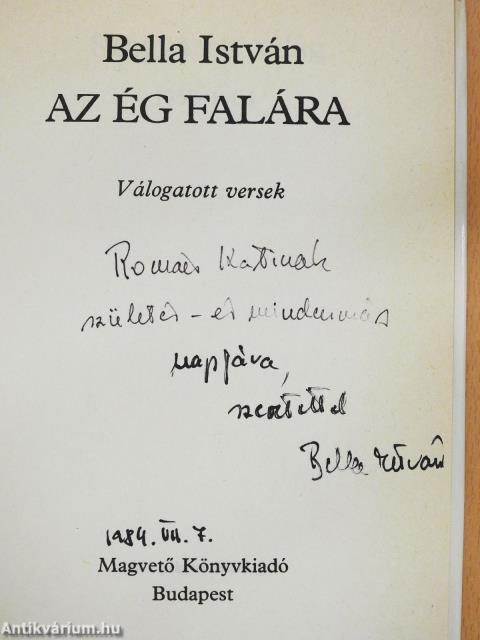 Bella István
AZ ÉG FALÁRA
Válogatott versek
Katinak
születés – és mindenmás
napjára,
szeretettel
Bella István
1984. VII. 7.
Magvető Könyvkiadó
Budapest
Antikvárium.hu